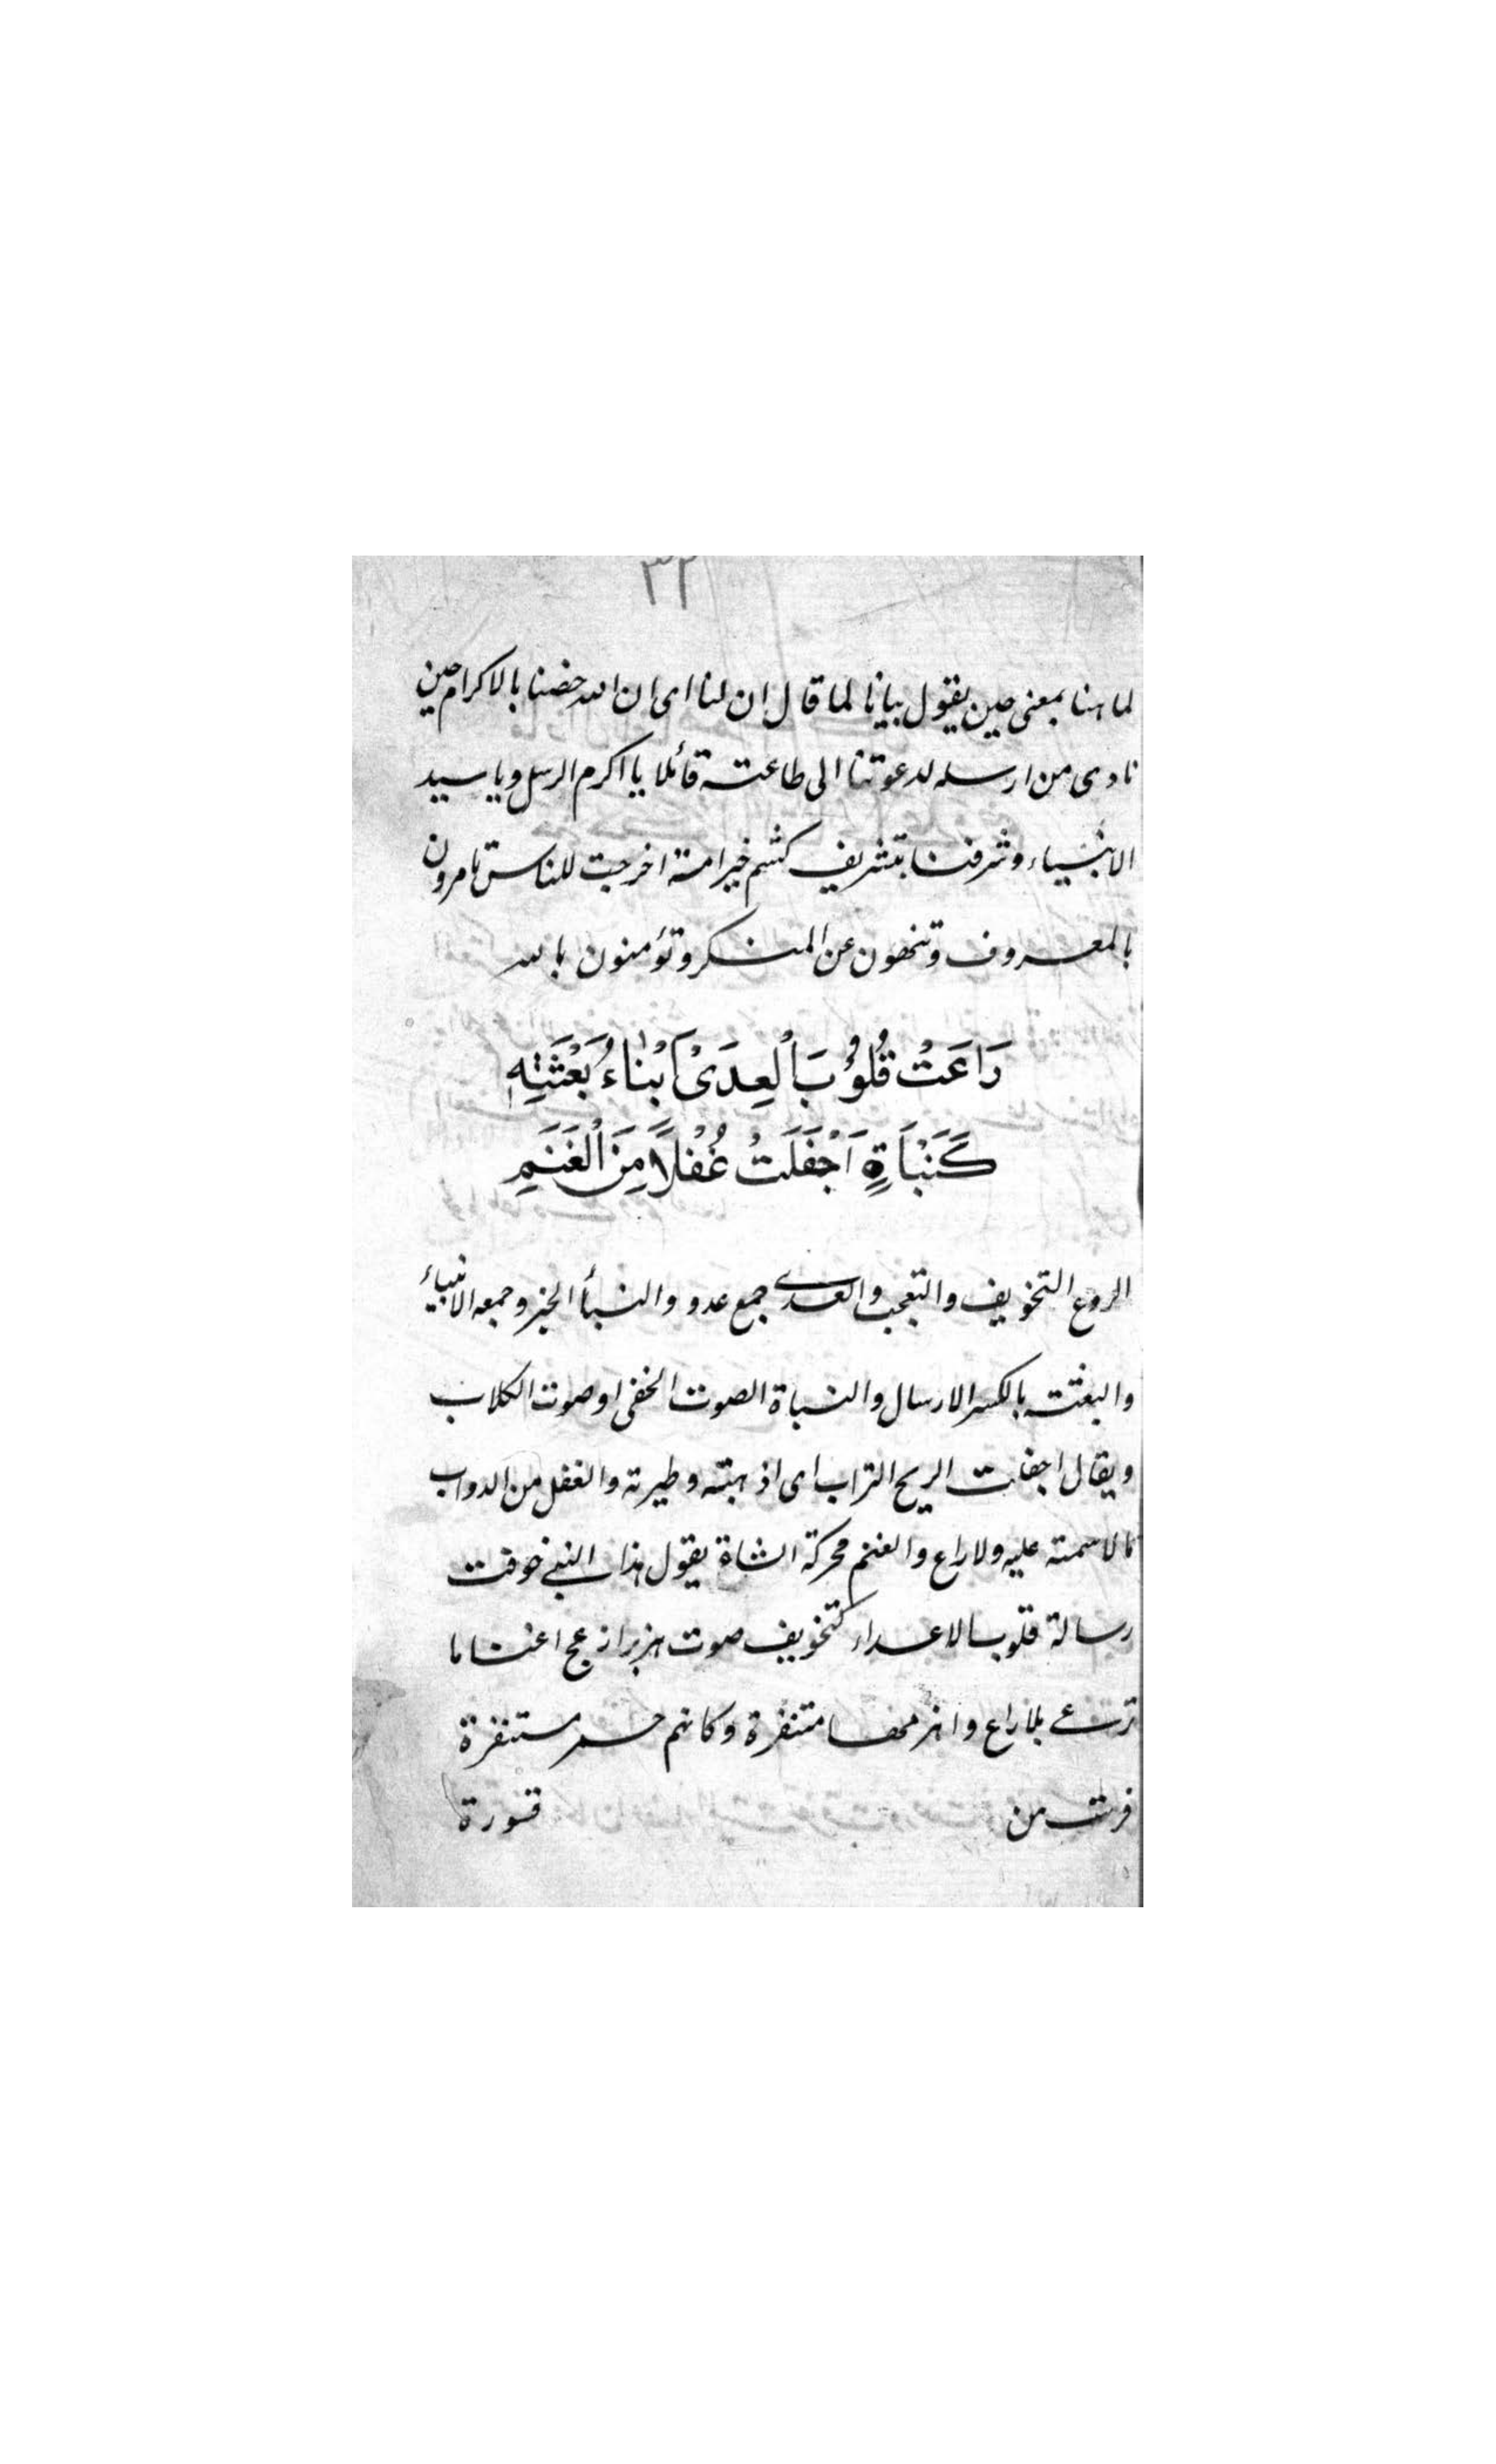 ٣٢
لما هنا بمعنى حين يقول بيانا لما قال ان لنا اى ان الله خصنا بالاكرام حين
نادى من ارسله لدعوتنا الى طاعته قائلا يا اكرم الرسل ويا سيد
الانبياء وشرفنا بتشريف كنتم خير امة اخرجت للناس تامرون
بالمعروف وتنهون عن المنكر وتؤمنون بالله
رَاعَتْ قُلُوبَ الْعِدَىْ اَنْبَاءُ بَعْثَتِهِ
كَنَبْاَةٍ اَجْفَلَتْ غُفْلاً مِنَ الْغَنَمِ
الروع التخويف والتعجب والعدى جمع عدو والنبأ الخبر وجمعه الانبياء
والبعثة بالكسر الارسال والنباة الصوت الخفى او صوت الكلاب
ويقال اجفلت الريح التراب اى اذهبته وطيرته والغفل من الدواب
ما لا سمة عليه ولا راع والغنم محركة الشاة يقول هذا النبى خوفت
رسالة قلوب الاعداء كتخويف صوت هزبر ازعج اغناما
ترعى بلا راع وانهزمها متنفرة وكانهم حمر مستنفرة
فرت من قسورة